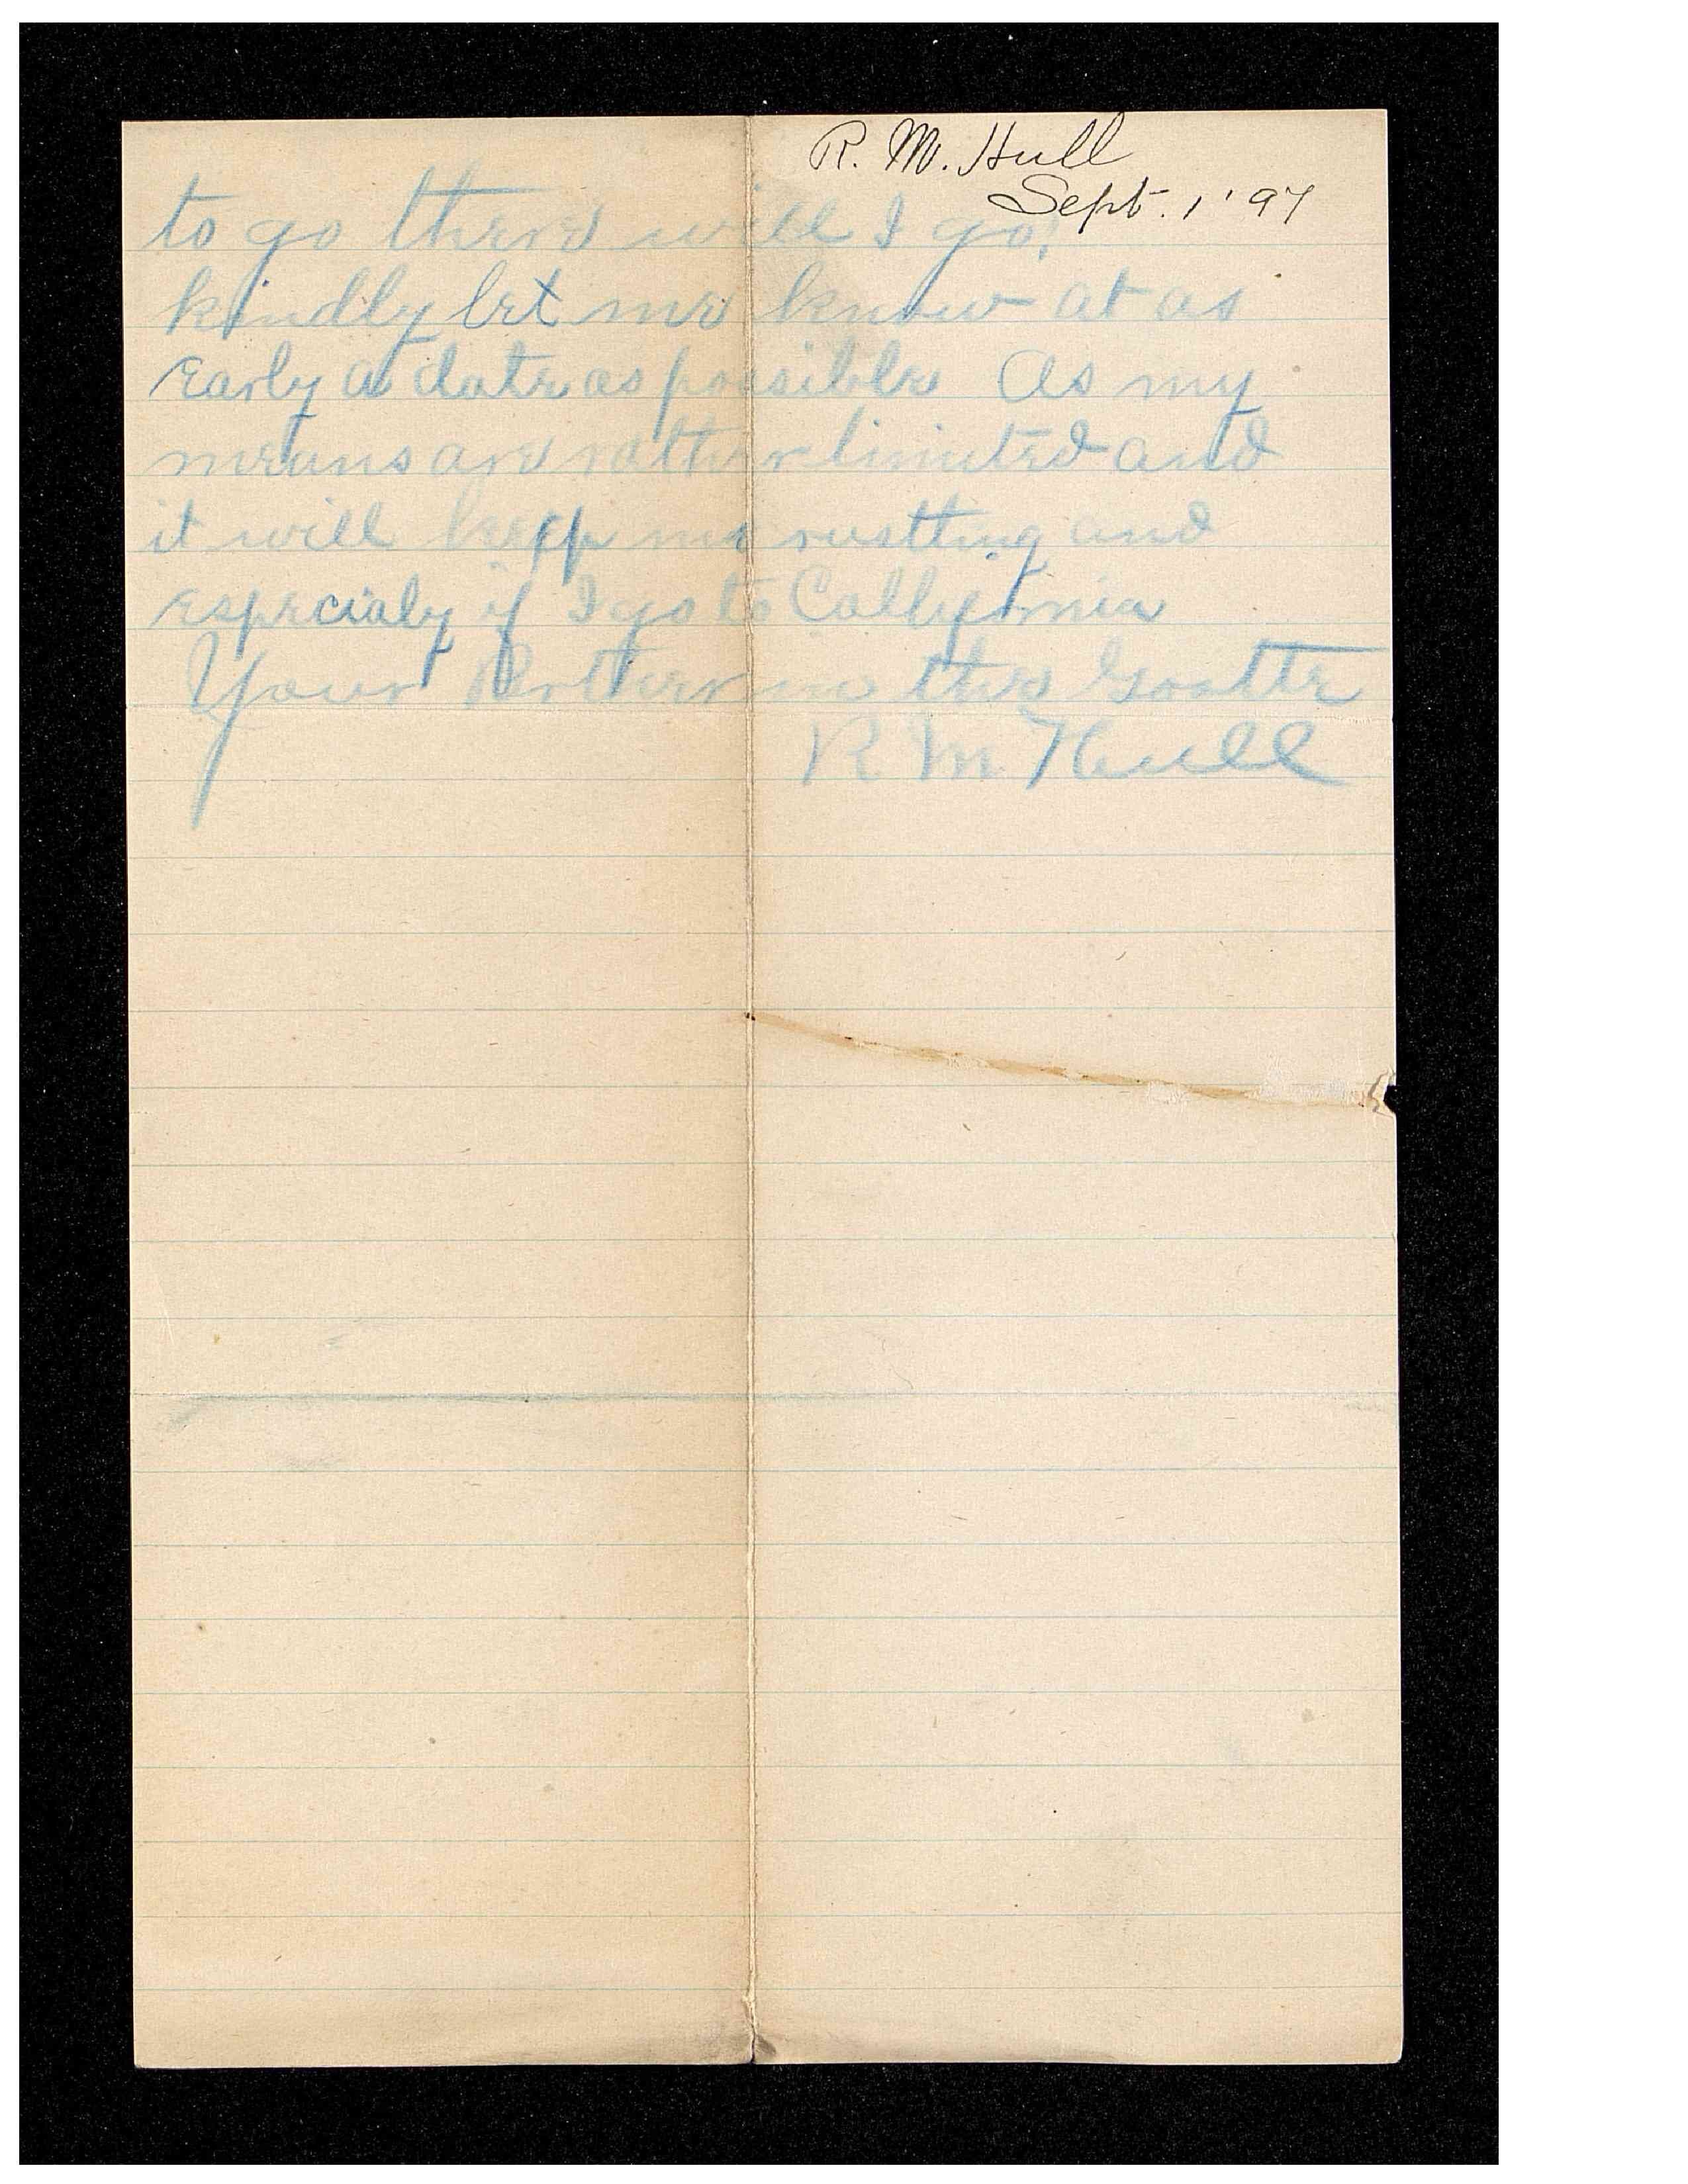 R. M. Hull
Sept. 1 '97
to go there will I go,
kindly let me know at as
early a date as possible As my
means are rather limited and
it will keep me rustting and
especialy if I go to Callifornia
Your Brother in the
R M Hull